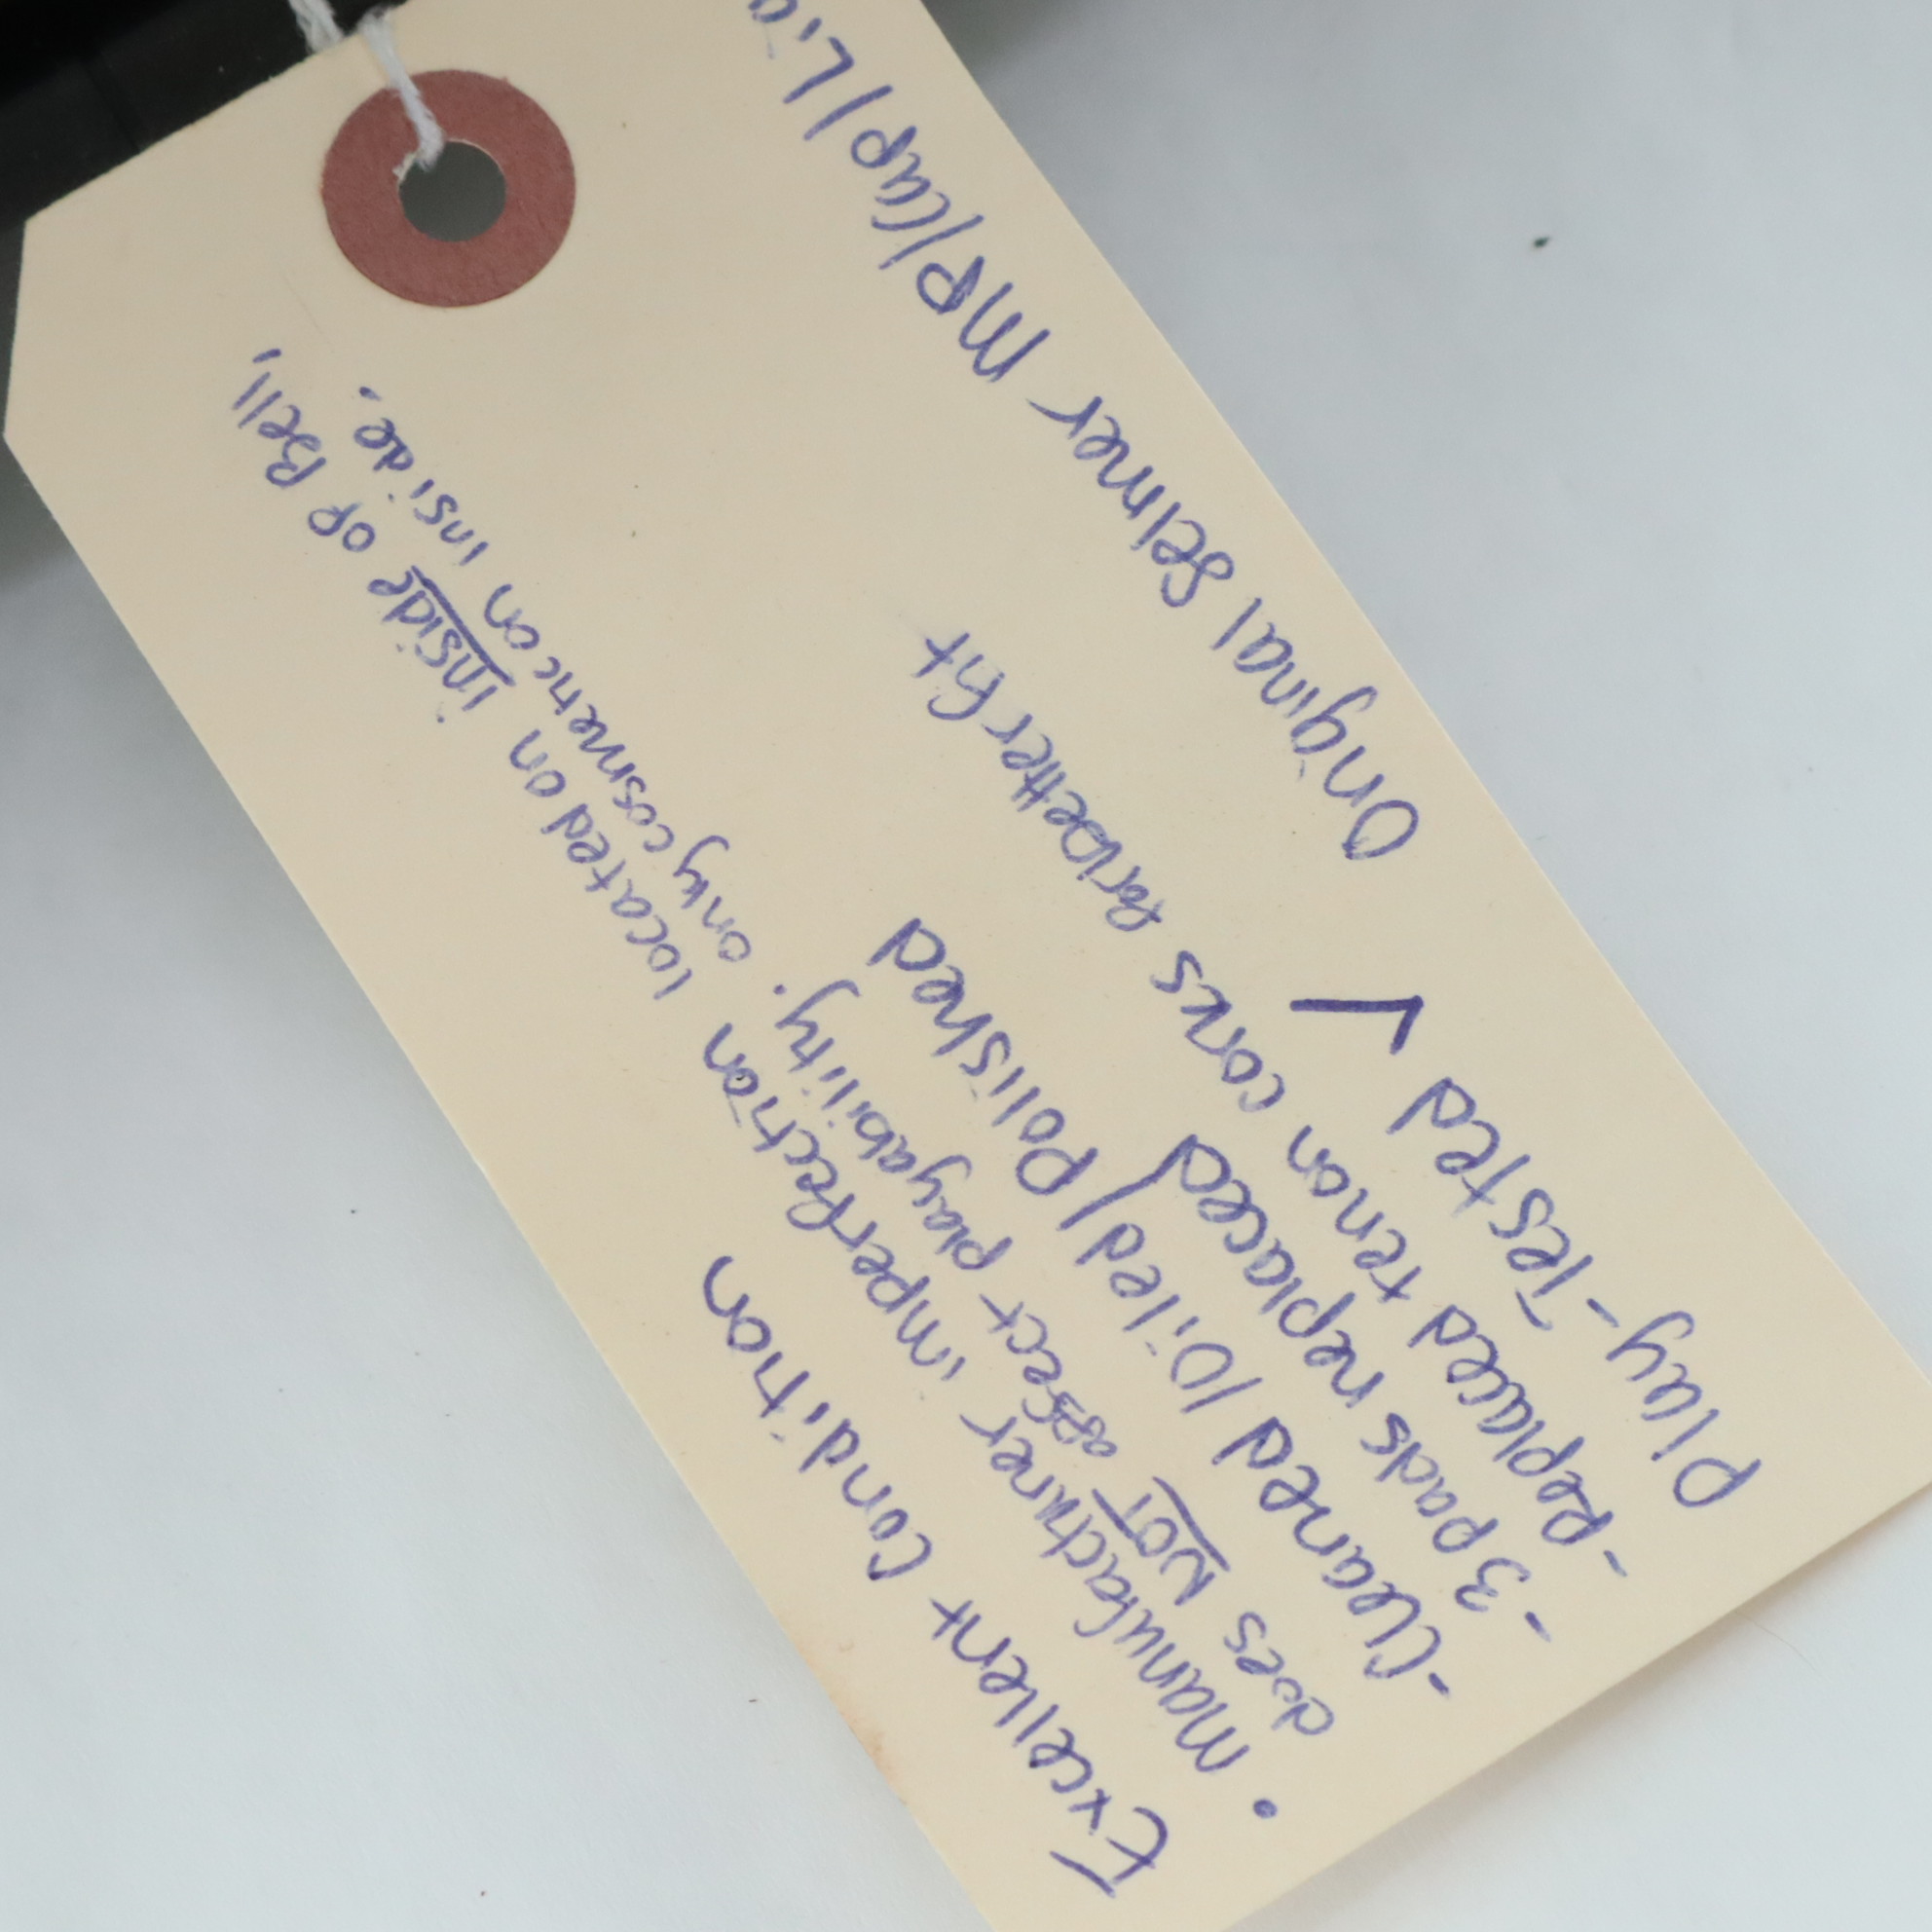 Excellent Condition
• manufacturer imperfection located on inside of Bell,
does NOT affect playability. only cosmetic on inside.
-Cleaned/Oiled/Polished
-3 pads replaced
-Replaced tenon corks for better fit
Play-Tested ✓ Original Selmer MP/Cap/Lig